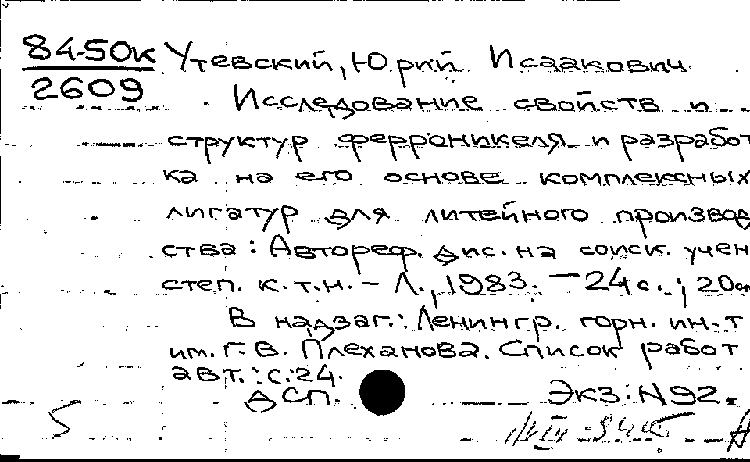 84-50к Утевский, Юрий Исаакович
2609
Исследование свойств и
структур ферроникеля и разработ
ка на его основе комплексных
лигатур для литейного производ
ства: Автореф. дис. на соиск. учен
степ. к.т.н. - Л., 1983. - 24 с.; 20см
В надзаг.: Ленингр. горн. ин-т
им. Г.В. Плеханова. Список работ
авт.: с. 24.
ДСП. Экз: N 92.
5